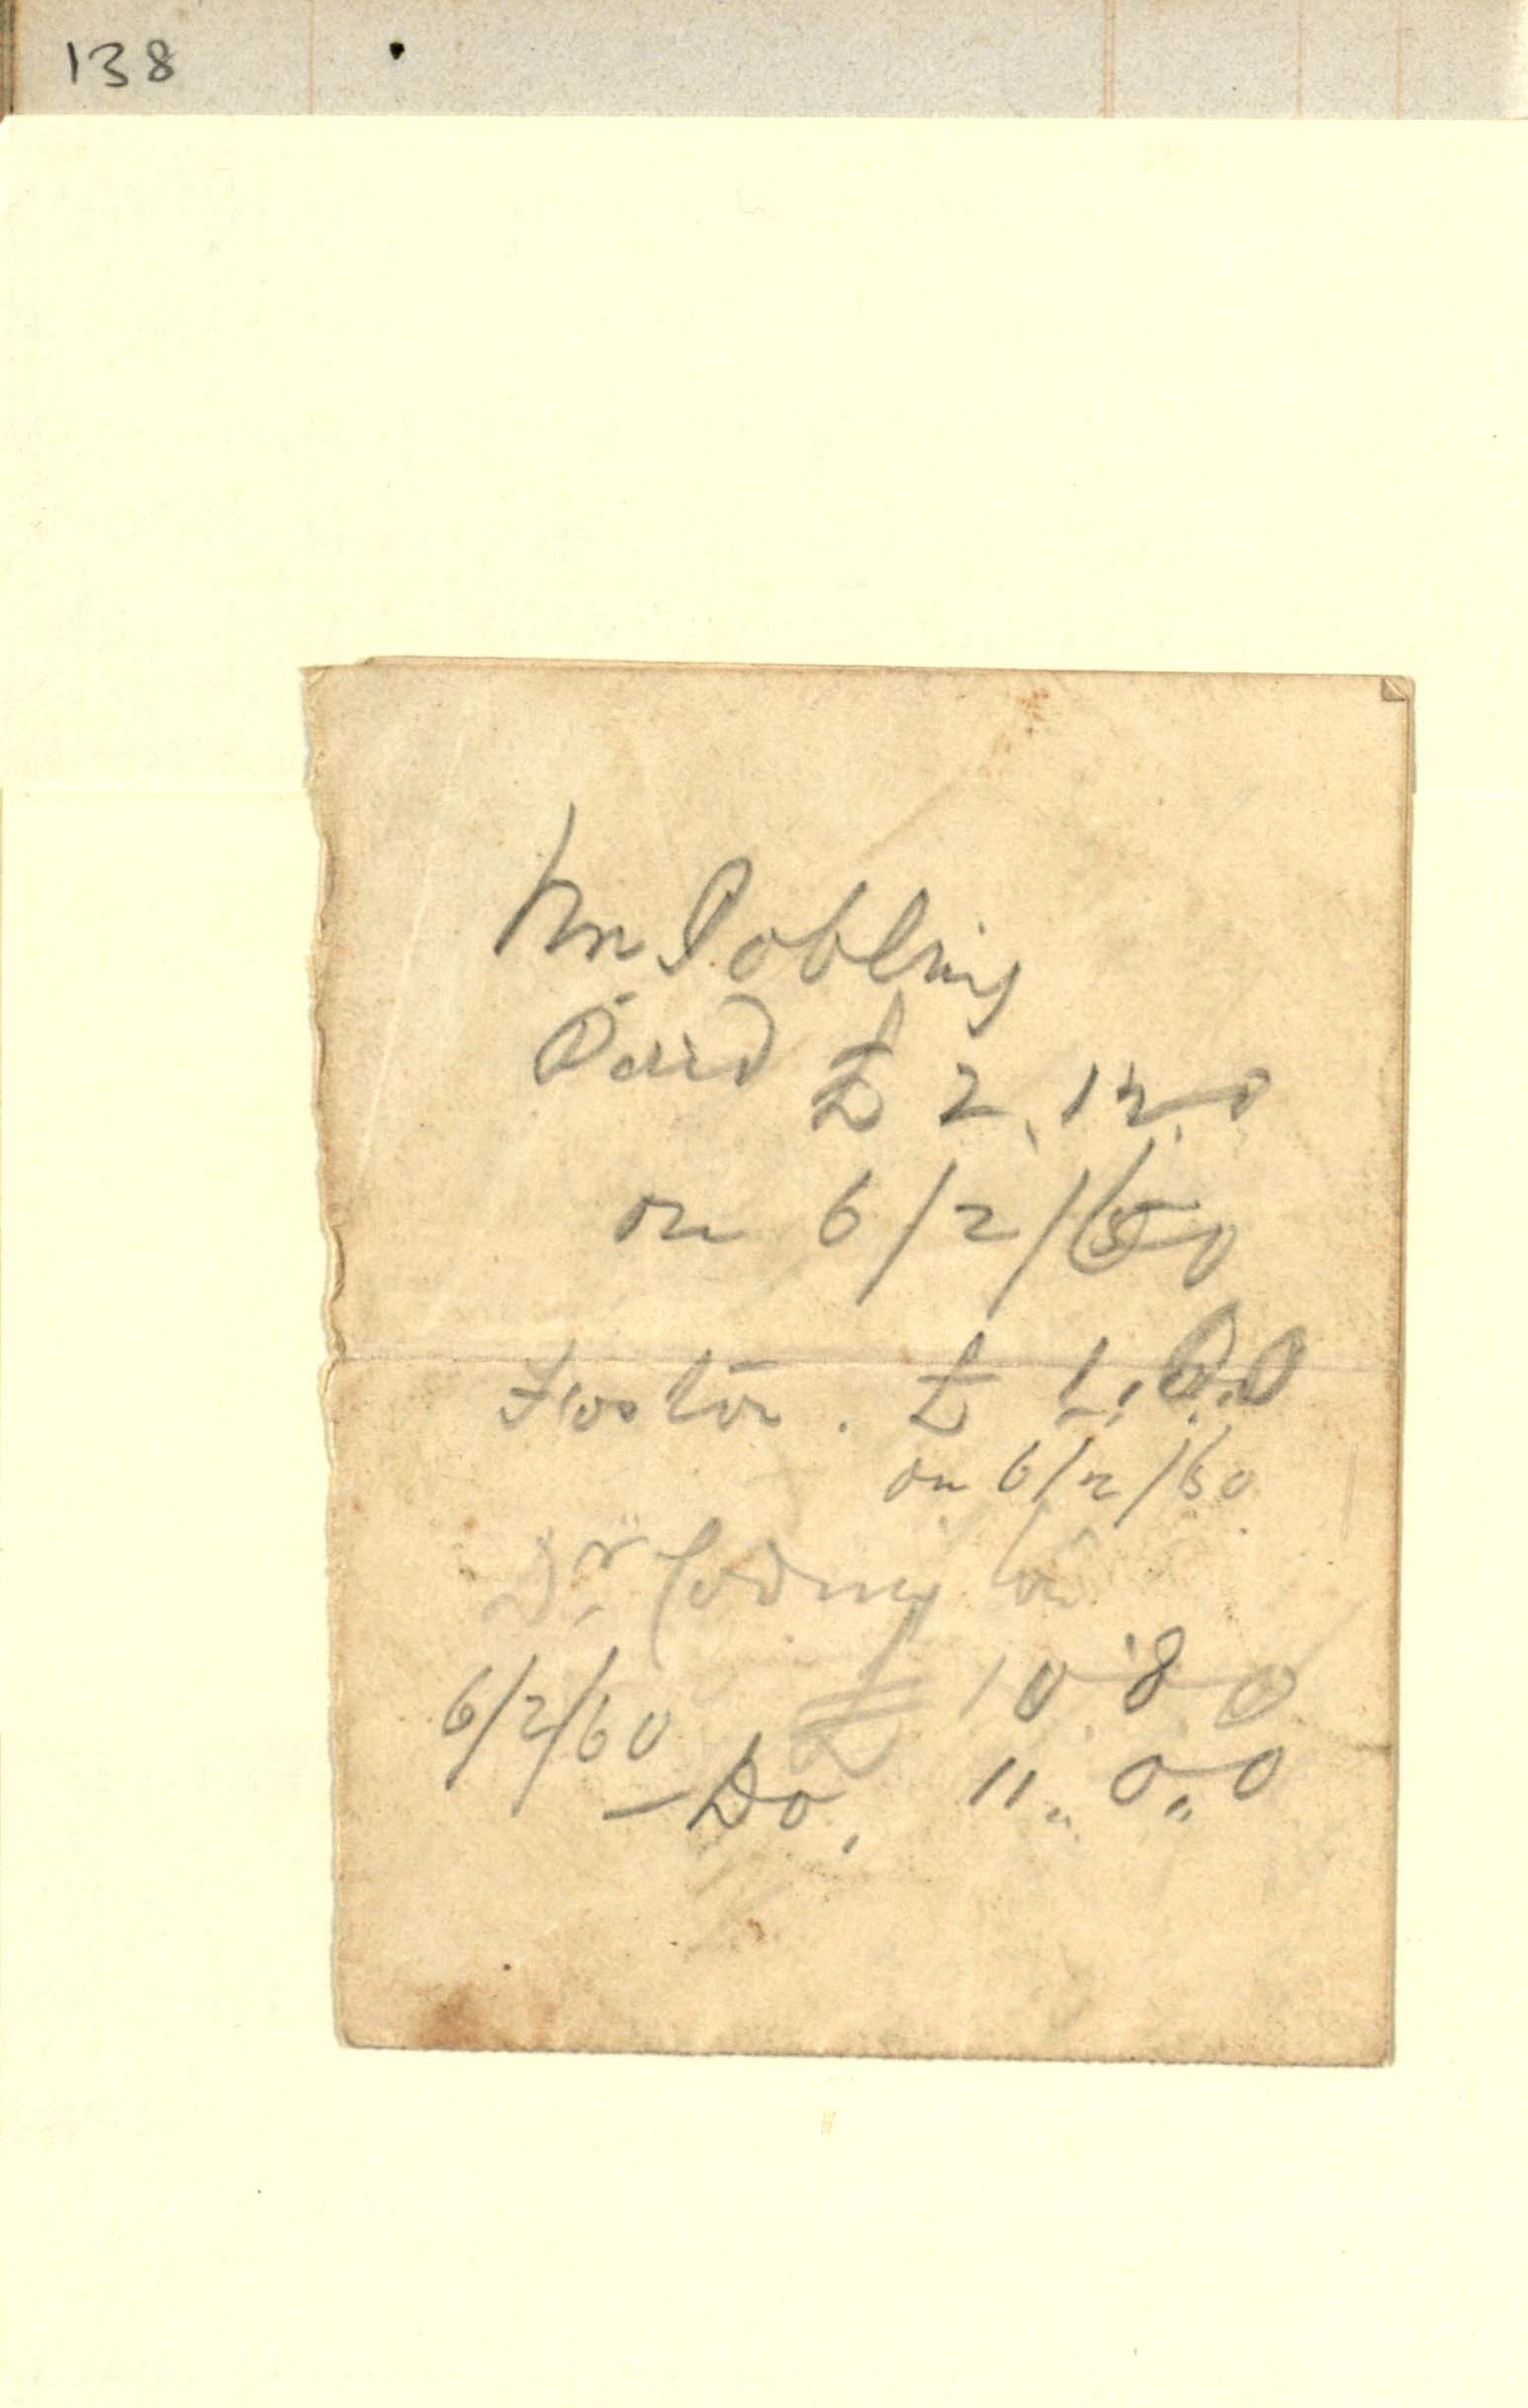 138
Mr Jobling
Paid £ 2. 12. 0
on 6/2/60
Foster. £ 1. 0. 0
on 6/2/60
Dr on
6/2/60 £ 10. 8. 0
— Do. 11.. 0.. 0